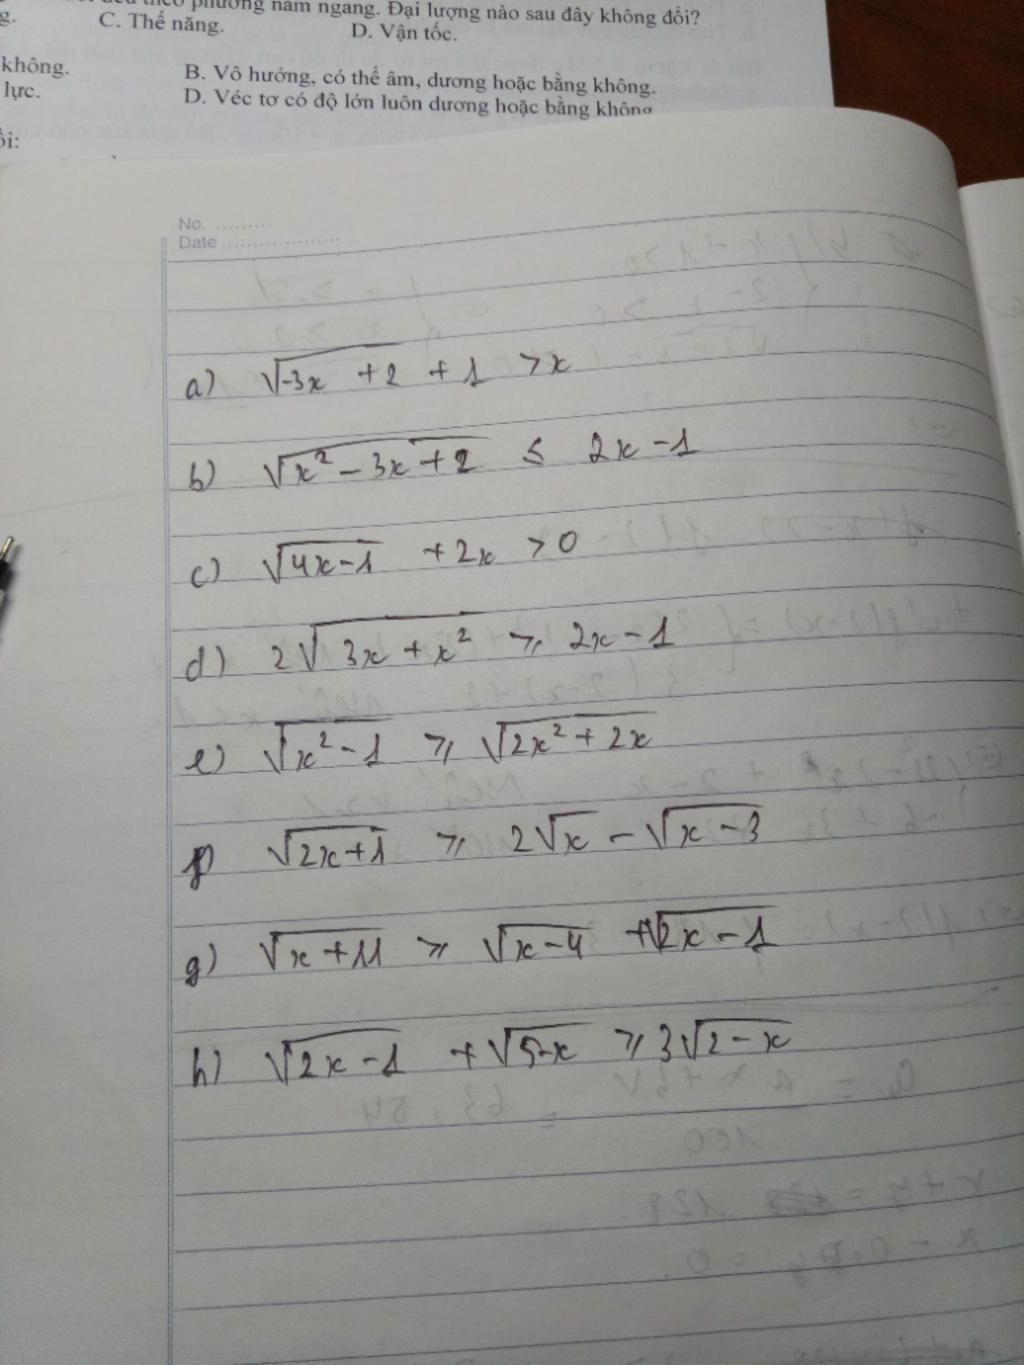 phương nằm ngang. Đại lượng nào sau đây không đổi?
g. C. Thế năng. D. Vận tốc.
không. B. Vô hướng, có thể âm, dương hoặc bằng không.
lực. D. Véc tơ có độ lớn luôn dương hoặc bằng không
ôi:
No. ..........
Date ....................
a) √(-3x + 2) + 1 > x
b) √(x² - 3x + 2) ≤ 2x - 1
c) √(4x-1) + 2x > 0
d) 2√(3x + x²) ≥ 2x - 1
e) √(x² - 1) ≥ √(2x² + 2x)
f) √(2x+1) ≥ 2√x - √(x-3)
g) √(x+11) ≥ √(x-4) + √(2x-1)
h) √(2x-1) + √(5-x) ≥ 3√(2-x)